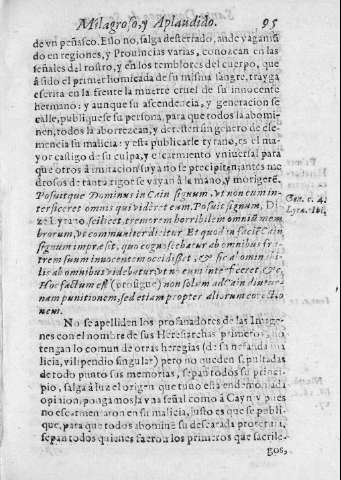 Milagroso, y Aplaudido. 95
de vn peñasco. Esso no, salga desterrado, ande vagamũ
do en regiones, y Prouincias varias, conozcan en las
señales del rostro, y en los temblores del cuerpo, que
à sido el primer homicida de su misma sangre, trayga
escrita en la frente la muerte cruel de su innocente
hermano: y aunque su ascendencia, y generacion se
calle, publiquese su persona, para que todos la abomi-
nen, todos la aborrezcan, y detesten sin genero de cle-
mencia su malicia: y esta publicarle tyrano, es el ma-
yor castigo de su culpa, y escarmiento vniuersal para
que otros à imitacion suya no se precipiten; antes me
drosos de tanto rigor se vayan à la mano, y morigerẽ.
Posuitque Dominus in Cain signum, vt non eum in-
terficeret omnis qui videret eum. Posuit signum, Di-
ze Lyrano, scilicet, tremorem horribilem omniũ mem
brorum, vt communiter dicitur. Et quod in faciẽ Cain
signum impræsit, quo cognoscebatur ab omnibus fra-
trem suum innocentem occidisse, & sic abomina-
lis ab omnibus videbatur, vt non eum interficeret, &c.
Hoc factum est (prosigue) non solum ad Cain diutur-
nam punitionem, sed etiam propter aliorum correctio
nem.
Gen. c. 4.
Lyra. ibi,
No se apelliden los profanadores de las Image-
nes con el nombre de sus Heresiarchas primeros, no
tengan lo comun de otras heregias (de su nefanda ma
licia, vilipendio singular) pero no queden sepultadas
de todo punto sus memorias, sepan todos su princi-
pio, salga à luz el origen que tuuo esta endemoniada
opinion, pongamosla vna señal como à Cayn, y pues
no escarmentaron en su malicia, justo es que se publi-
que, para que todos abomine su descarada proteruia,
sepan todos quienes fueron los primeros que sacrile-
gos,